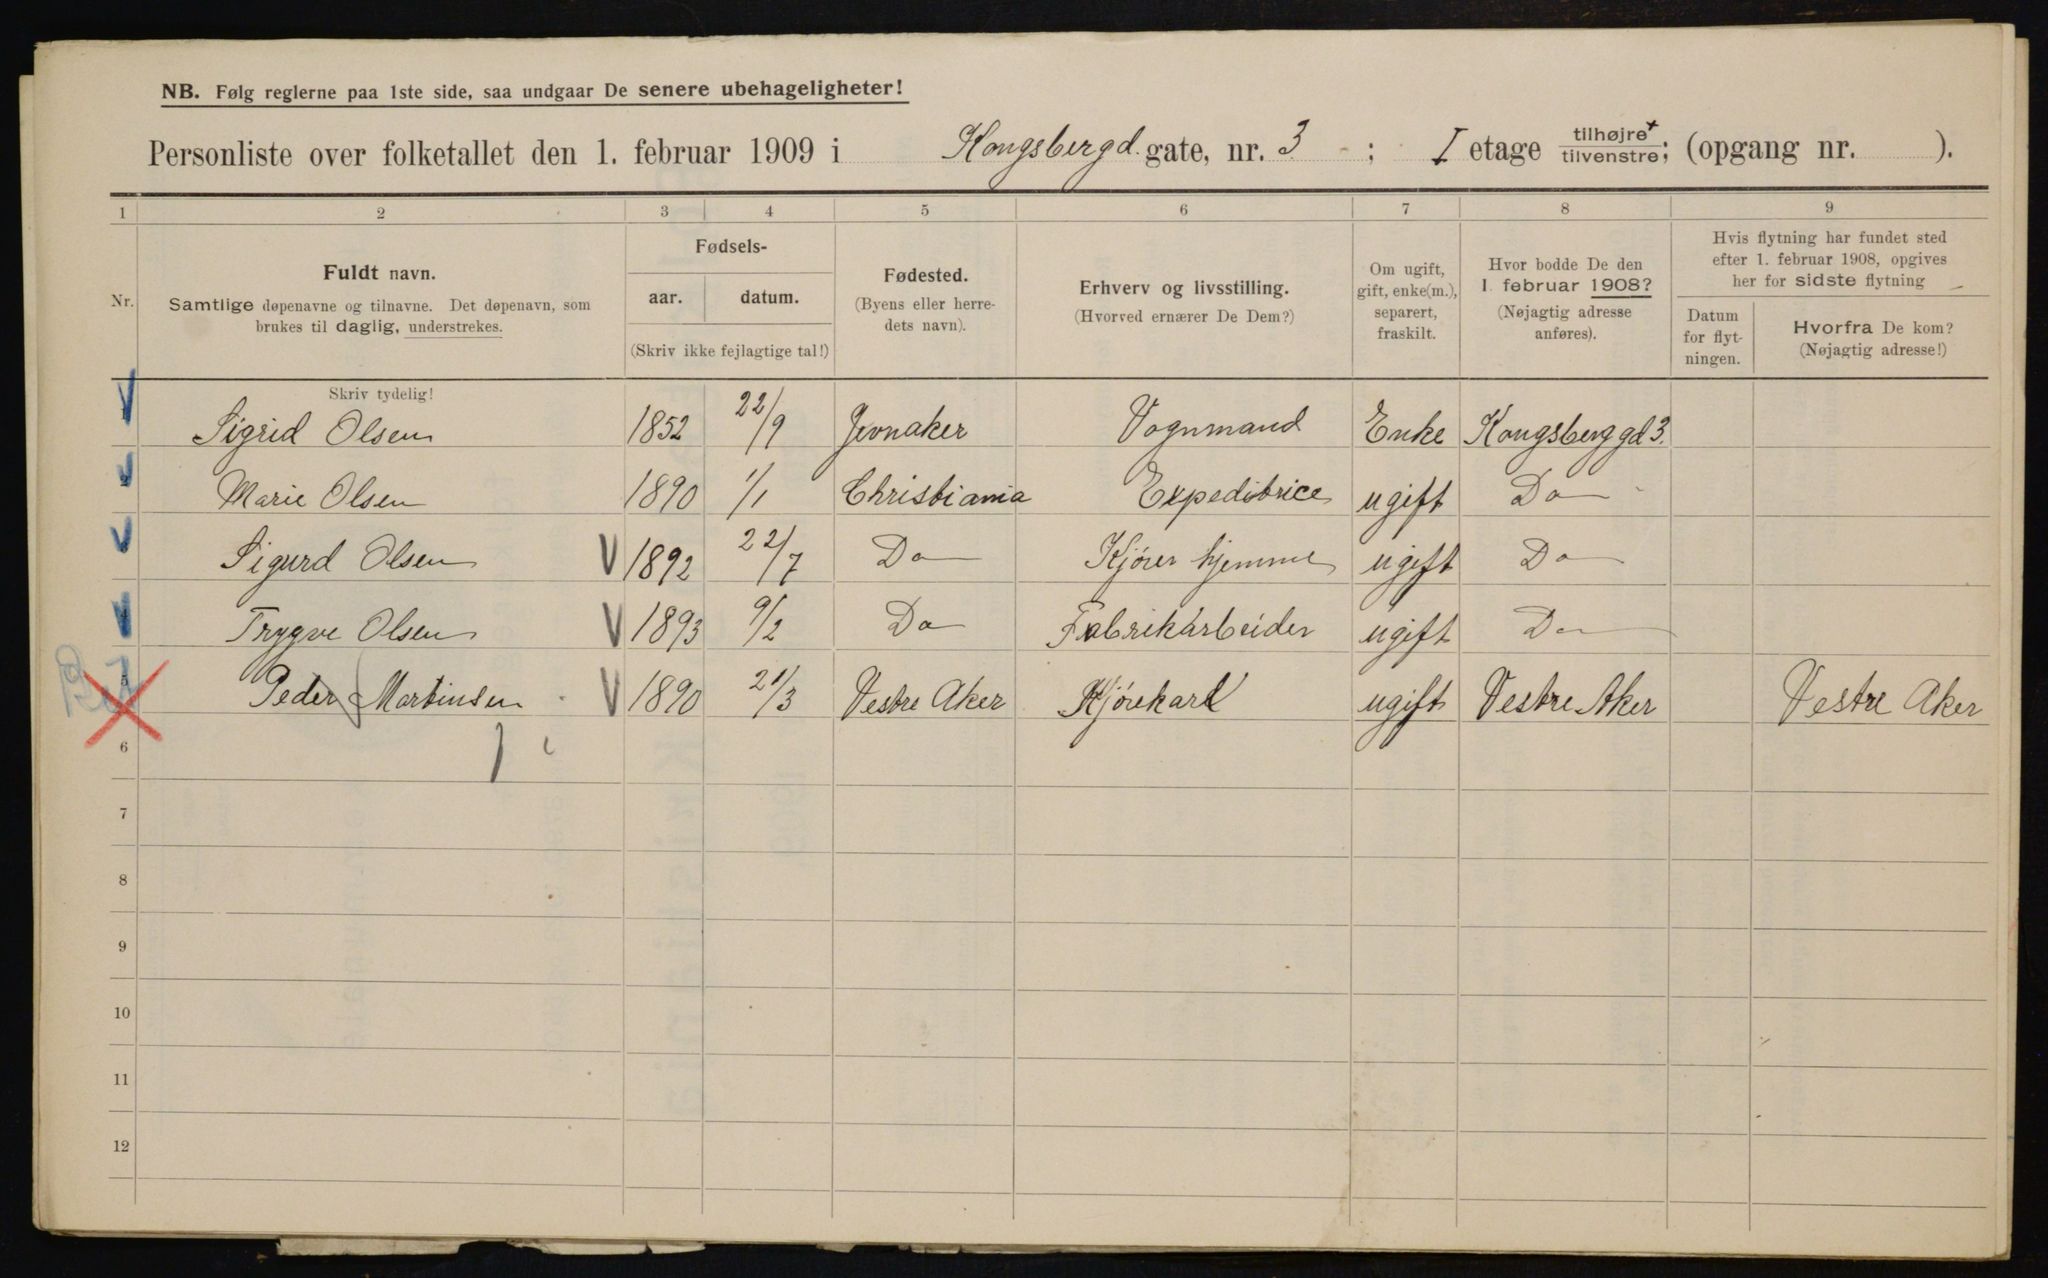 NB. Følg reglerne paa 1ste side, saa undgaar De senere ubehageligheter!
Personliste over folketallet den 1. februar 1909 i Kongsbergd. gate, nr. 3 ; I etage tilhøjre+ / tilvenstre; (opgang nr. ).
1 2 3 4 5 6 7 8 9
Nr.
Fuldt navn.
Samtlige døpenavne og tilnavne. Det døpenavn, som
brukes til daglig, understrekes.
Fødsels-
aar. datum.
(Skriv ikke fejlagtige tal!)
Fødested.
(Byens eller herre-
dets navn).
Erhverv og livsstilling.
(Hvorved ernærer De Dem?)
Om ugift,
gift, enke(m.),
separert,
fraskilt.
Hvor bodde De den
1. februar 1908?
(Nøjagtig adresse
anføres).
Hvis flytning har fundet sted
efter 1. februar 1908, opgives
her for sidste flytning
Datum
for flyt-
ningen.
Hvorfra De kom?
(Nøjagtig adresse!)
Skriv tydelig!
1 Sigrid Olsen 1852 22/9 Jevnaker Vognmand Enke Kongsberggd 3.
2 Marie Olsen 1890 1/1 Christiania Expeditrice ugift Do
3 Sigurd Olsen V 1892 22/7 Do Kjører hjemme ugift Do
4 Trygve Olsen V 1893 9/2 Do Fabrikarbeider ugift Do
5 Peder Martinsen V 1890 21/3 Vestre Aker Kjørekarl ugift Vestre Aker Vestre Aker
6
7
8
9
10
11
12